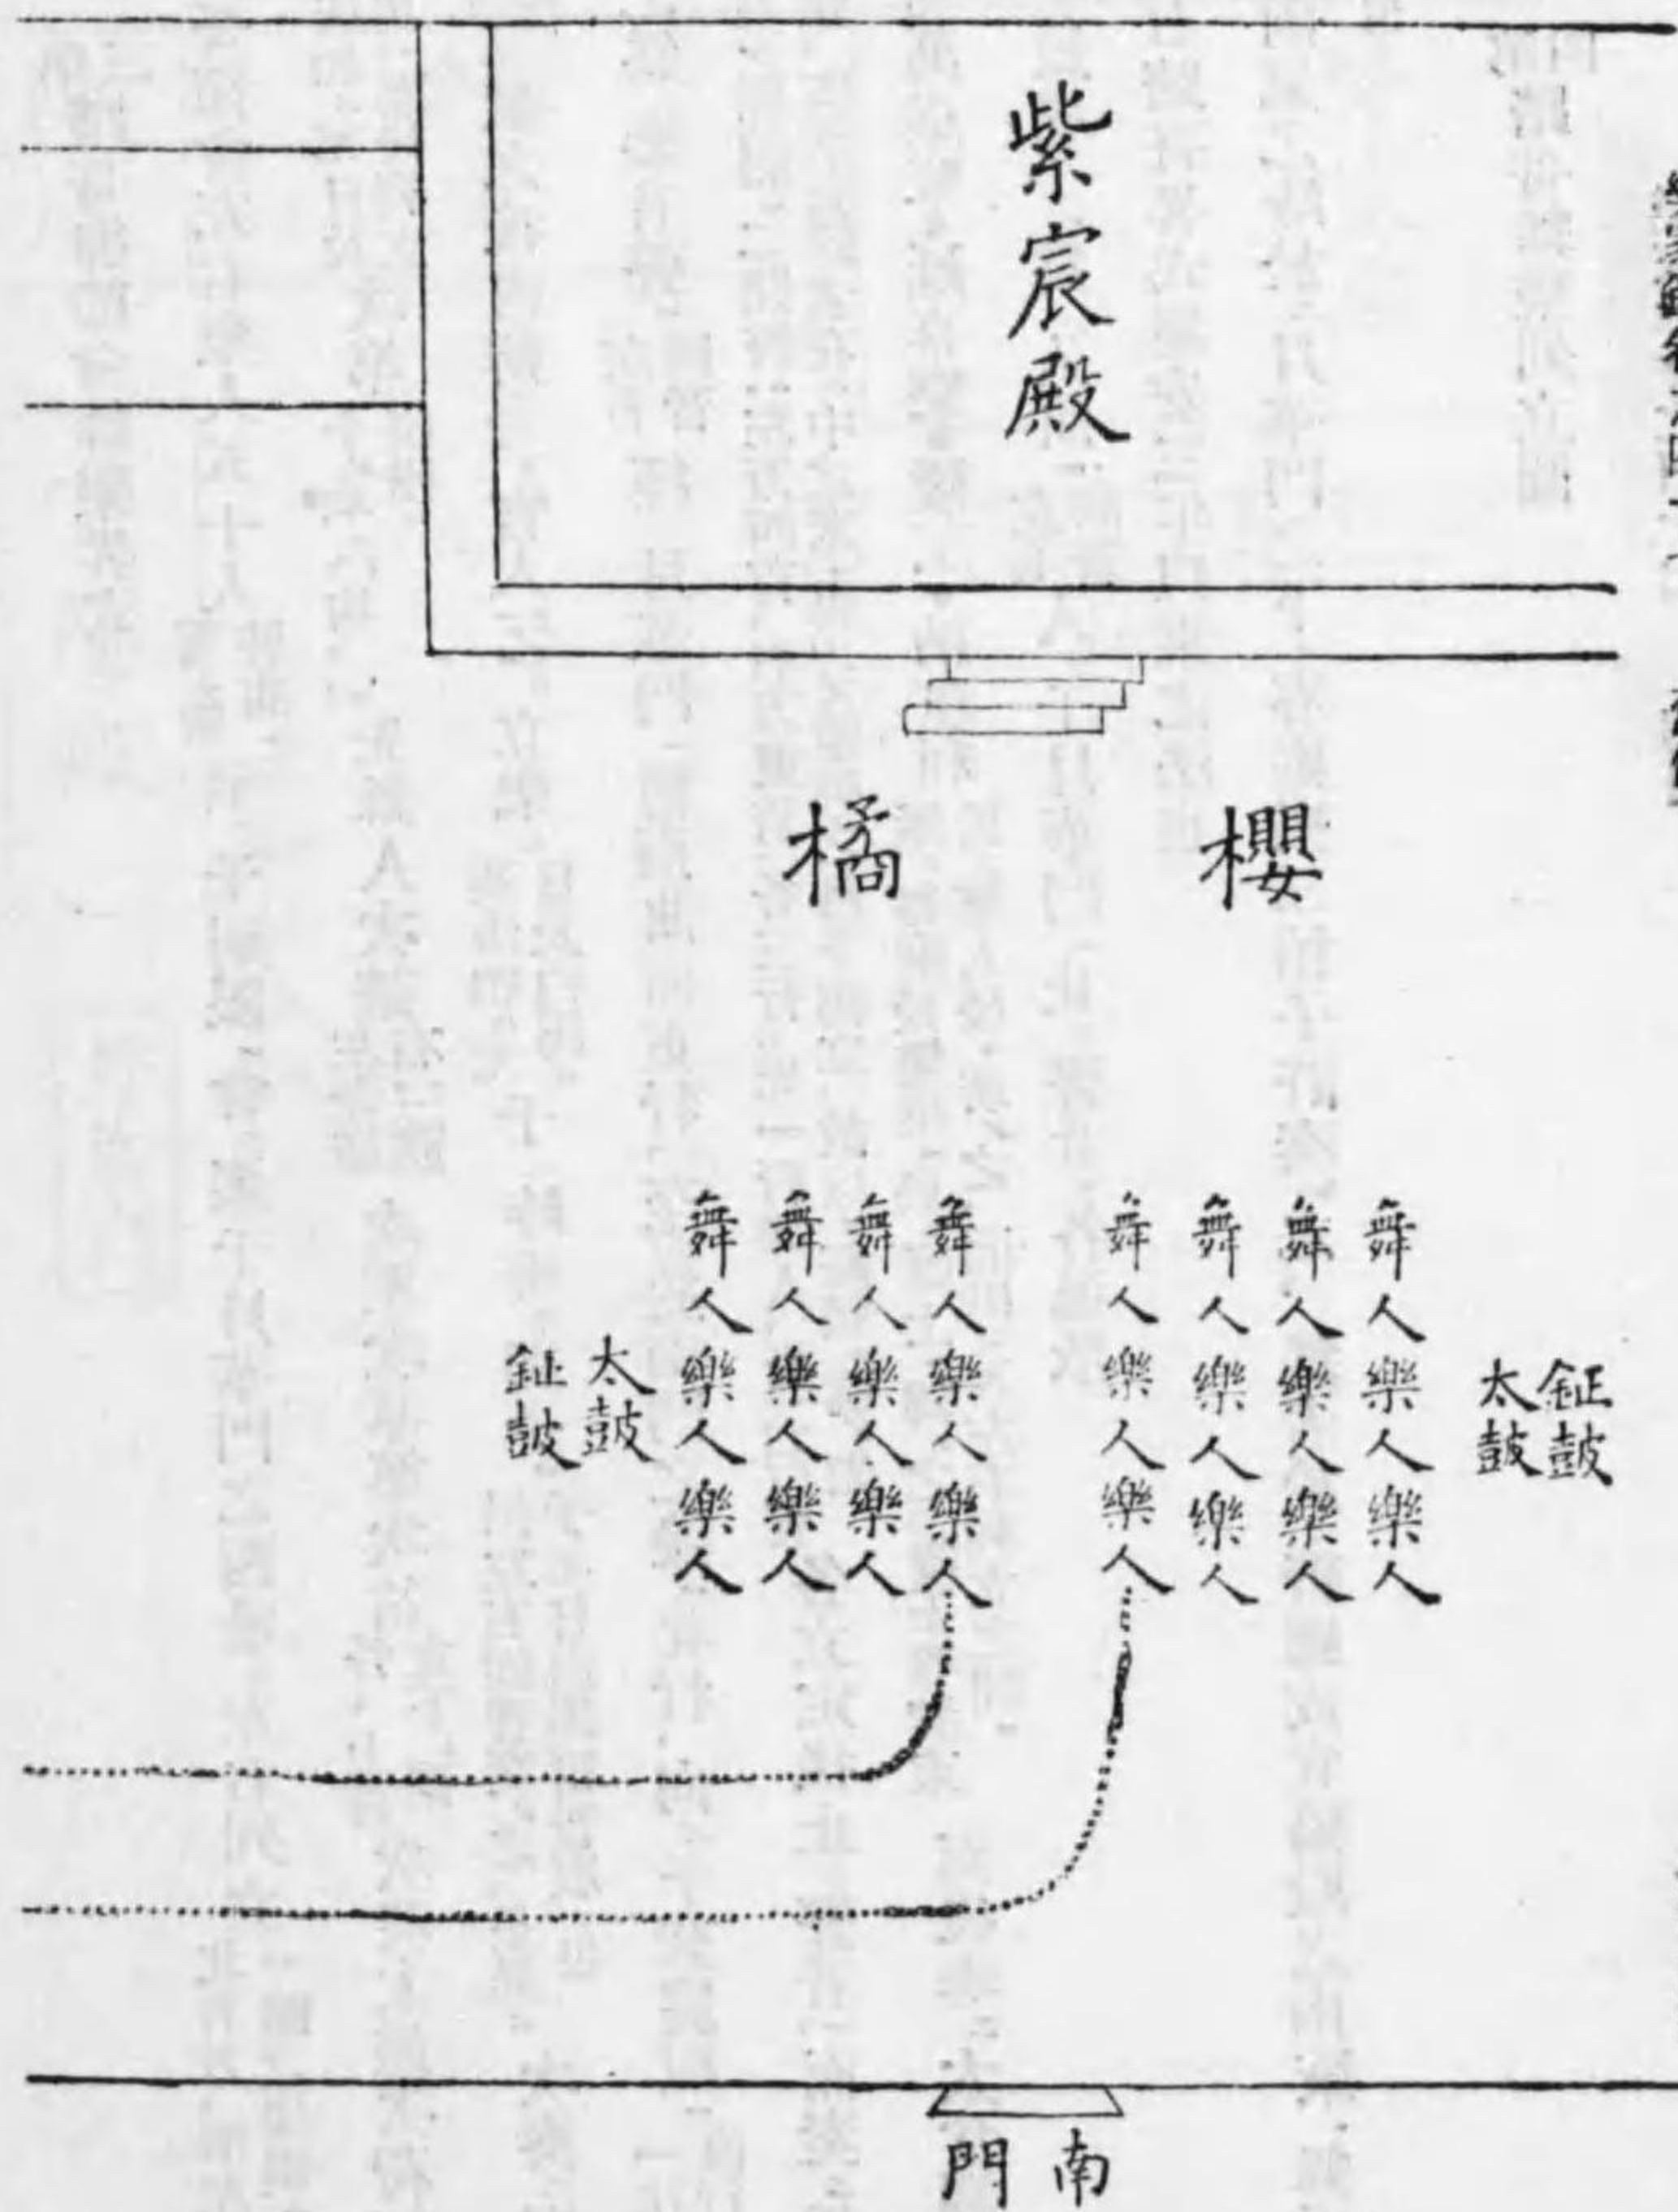 紫宸殿
櫻
橘
鉦鼓
太鼓
舞人樂人樂人
舞人樂人樂人
舞人樂人樂人
舞人樂人樂人
舞人樂人樂人
舞人樂人樂人
舞人樂人樂人
舞人樂人樂人
太鼓
鉦鼓
南門